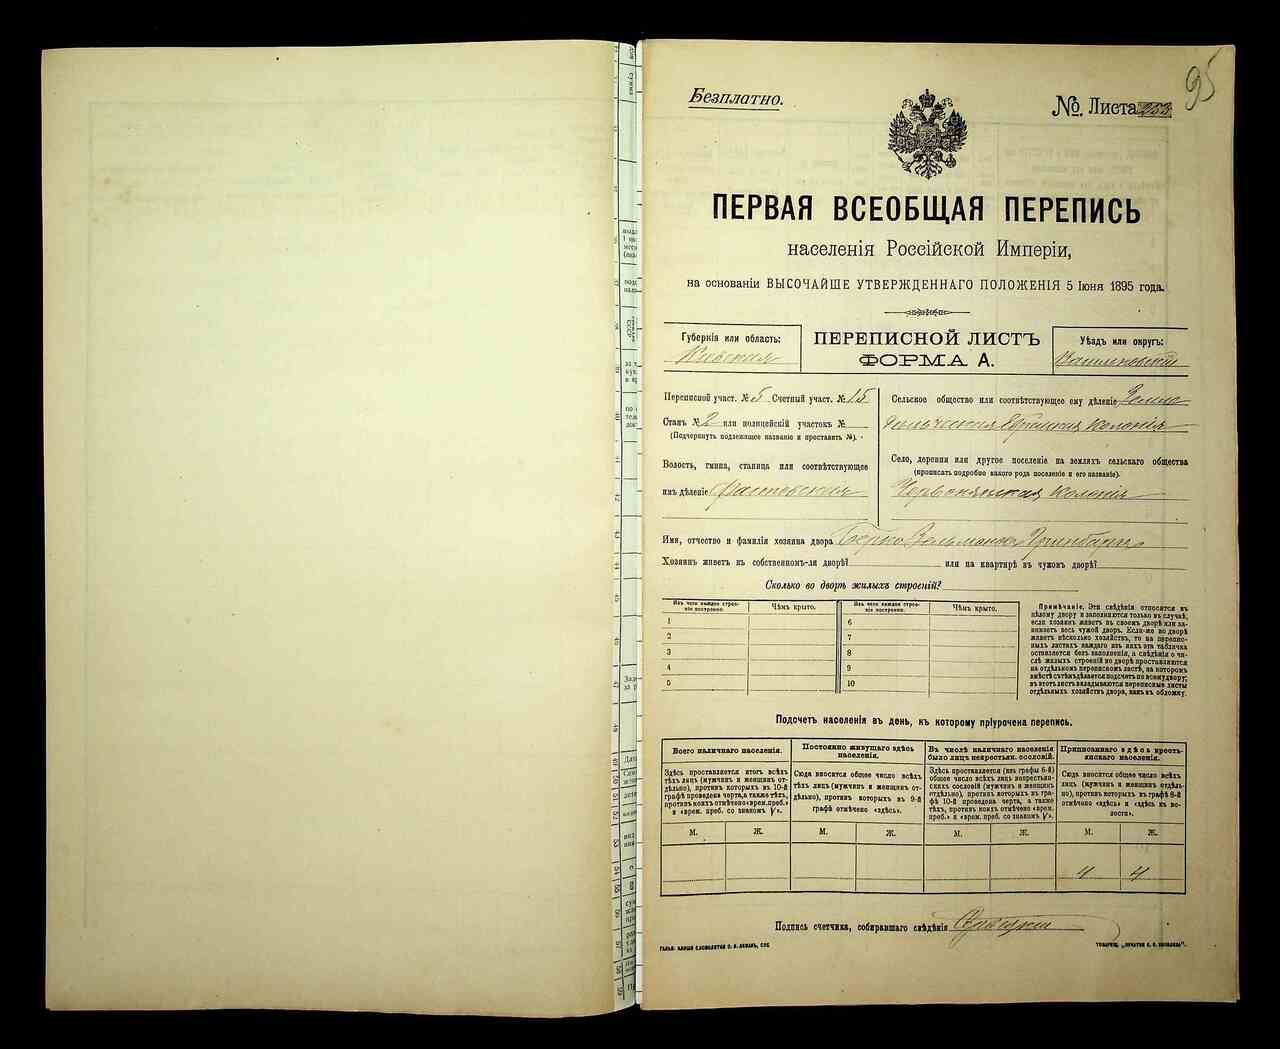 95
Безплатно.
№ Листа 253
ПЕРВАЯ ВСЕОБЩАЯ ПЕРЕПИСЬ
населенія Россійской Имперіи,
на основаніи ВЫСОЧАЙШЕ УТВЕРЖДЕННАГО ПОЛОЖЕНІЯ 5 Іюня 1895 года.
Губернія или область:
Кіевская
ПЕРЕПИСНОЙ ЛИСТЪ
ФОРМА А.
Уѣздъ или округъ:
Васильковскій
Переписной участ. № 5 Счетный участ. № 15
Станъ № 2 или полицейскій участокъ №
(Подчеркнуть подлежащее названіе и проставить №).
Волость, гмина, станица или соотвѣтствующее
имъ дѣленіе Фастовская
Сельское общество или соотвѣтствующее ему дѣленіе Земле
дѣльческая Еврейская колонія
Село, деревня или другое поселеніе на земляхъ сельскаго общества
(прописать подробно какого рода поселеніе и его названіе).
Червонянская колонія
Имя, отчество и фамилія хозяина двора Берко Зельмановъ Гринбаргъ
Хозяинъ живетъ въ собственномъ-ли дворѣ? или на квартирѣ въ чужомъ дворѣ?
Сколько во дворѣ жилыхъ строеній?
Изъ чего каждое строе-
ніе построено.
Чѣмъ крыто.
Изъ чего каждое строе-
ніе построено.
Чѣмъ крыто.
1
6
2
7
3
8
4
9
5
10
Примѣчаніе. Эти свѣдѣнія относятся къ
цѣлому двору и заполняются только въ случаѣ,
если хозяинъ живетъ въ своемъ дворѣ или за-
нимаетъ весь чужой дворъ. Если-же во дворѣ
живетъ нѣсколько хозяйствъ, то на перепис-
ныхъ листахъ каждаго изъ нихъ эта табличка
оставляется безъ заполненія, а свѣдѣнія о чи-
слѣ жилыхъ строеній во дворѣ проставляются
на отдѣльномъ переписномъ листѣ, на которомъ
вмѣстѣ съ тѣмъ дѣлается подсчетъ по всему двору;
въ этотъ листъ вкладываются переписные листы
отдѣльныхъ хозяйствъ двора, какъ въ обложку.
Подсчетъ населенія въ день, къ которому пріурочена перепись.
Всего наличнаго населенія.
Здѣсь проставляется итогъ всѣхъ
лицъ (мужчинъ и женщинъ от-
дѣльно), противъ которыхъ въ 10-й
графѣ проведена черта, а также тѣхъ,
противъ коихъ отмѣчено «врем. преб.»
и «врем. преб. со знакомъ V».
Постоянно живущаго здѣсь
населенія.
Сюда вносится общее число всѣхъ
тѣхъ лицъ (мужчинъ и женщинъ от-
дѣльно), противъ которыхъ въ 9-й
графѣ отмѣчено «здѣсь».
Въ числѣ наличнаго населенія
было лицъ некрестьян. сословій.
Здѣсь проставляется (изъ графы 6-й)
общее число всѣхъ лицъ некрестьян-
скихъ сословій (мужчинъ и женщинъ
отдѣльно), противъ которыхъ въ гра-
фѣ 10-й проведена черта, а также
тѣхъ, противъ коихъ отмѣчено «врем.
преб.» и «врем. преб. со знакомъ V».
Приписаннаго здѣсь кресть-
янскаго населенія.
Сюда вносится общее число всѣхъ
лицъ (мужчинъ и женщинъ отдѣль-
но), противъ которыхъ въ графѣ 8-й
отмѣчено «здѣсь» и «здѣсь въ во-
лости».
М. Ж. М. Ж. М. Ж. М. Ж.
4 4
Подпись счетчика, собиравшаго свѣдѣнія